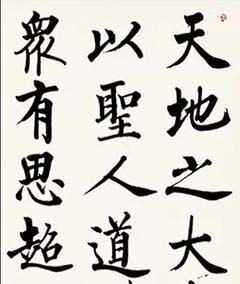 天地之大
以聖人道
衆有思超